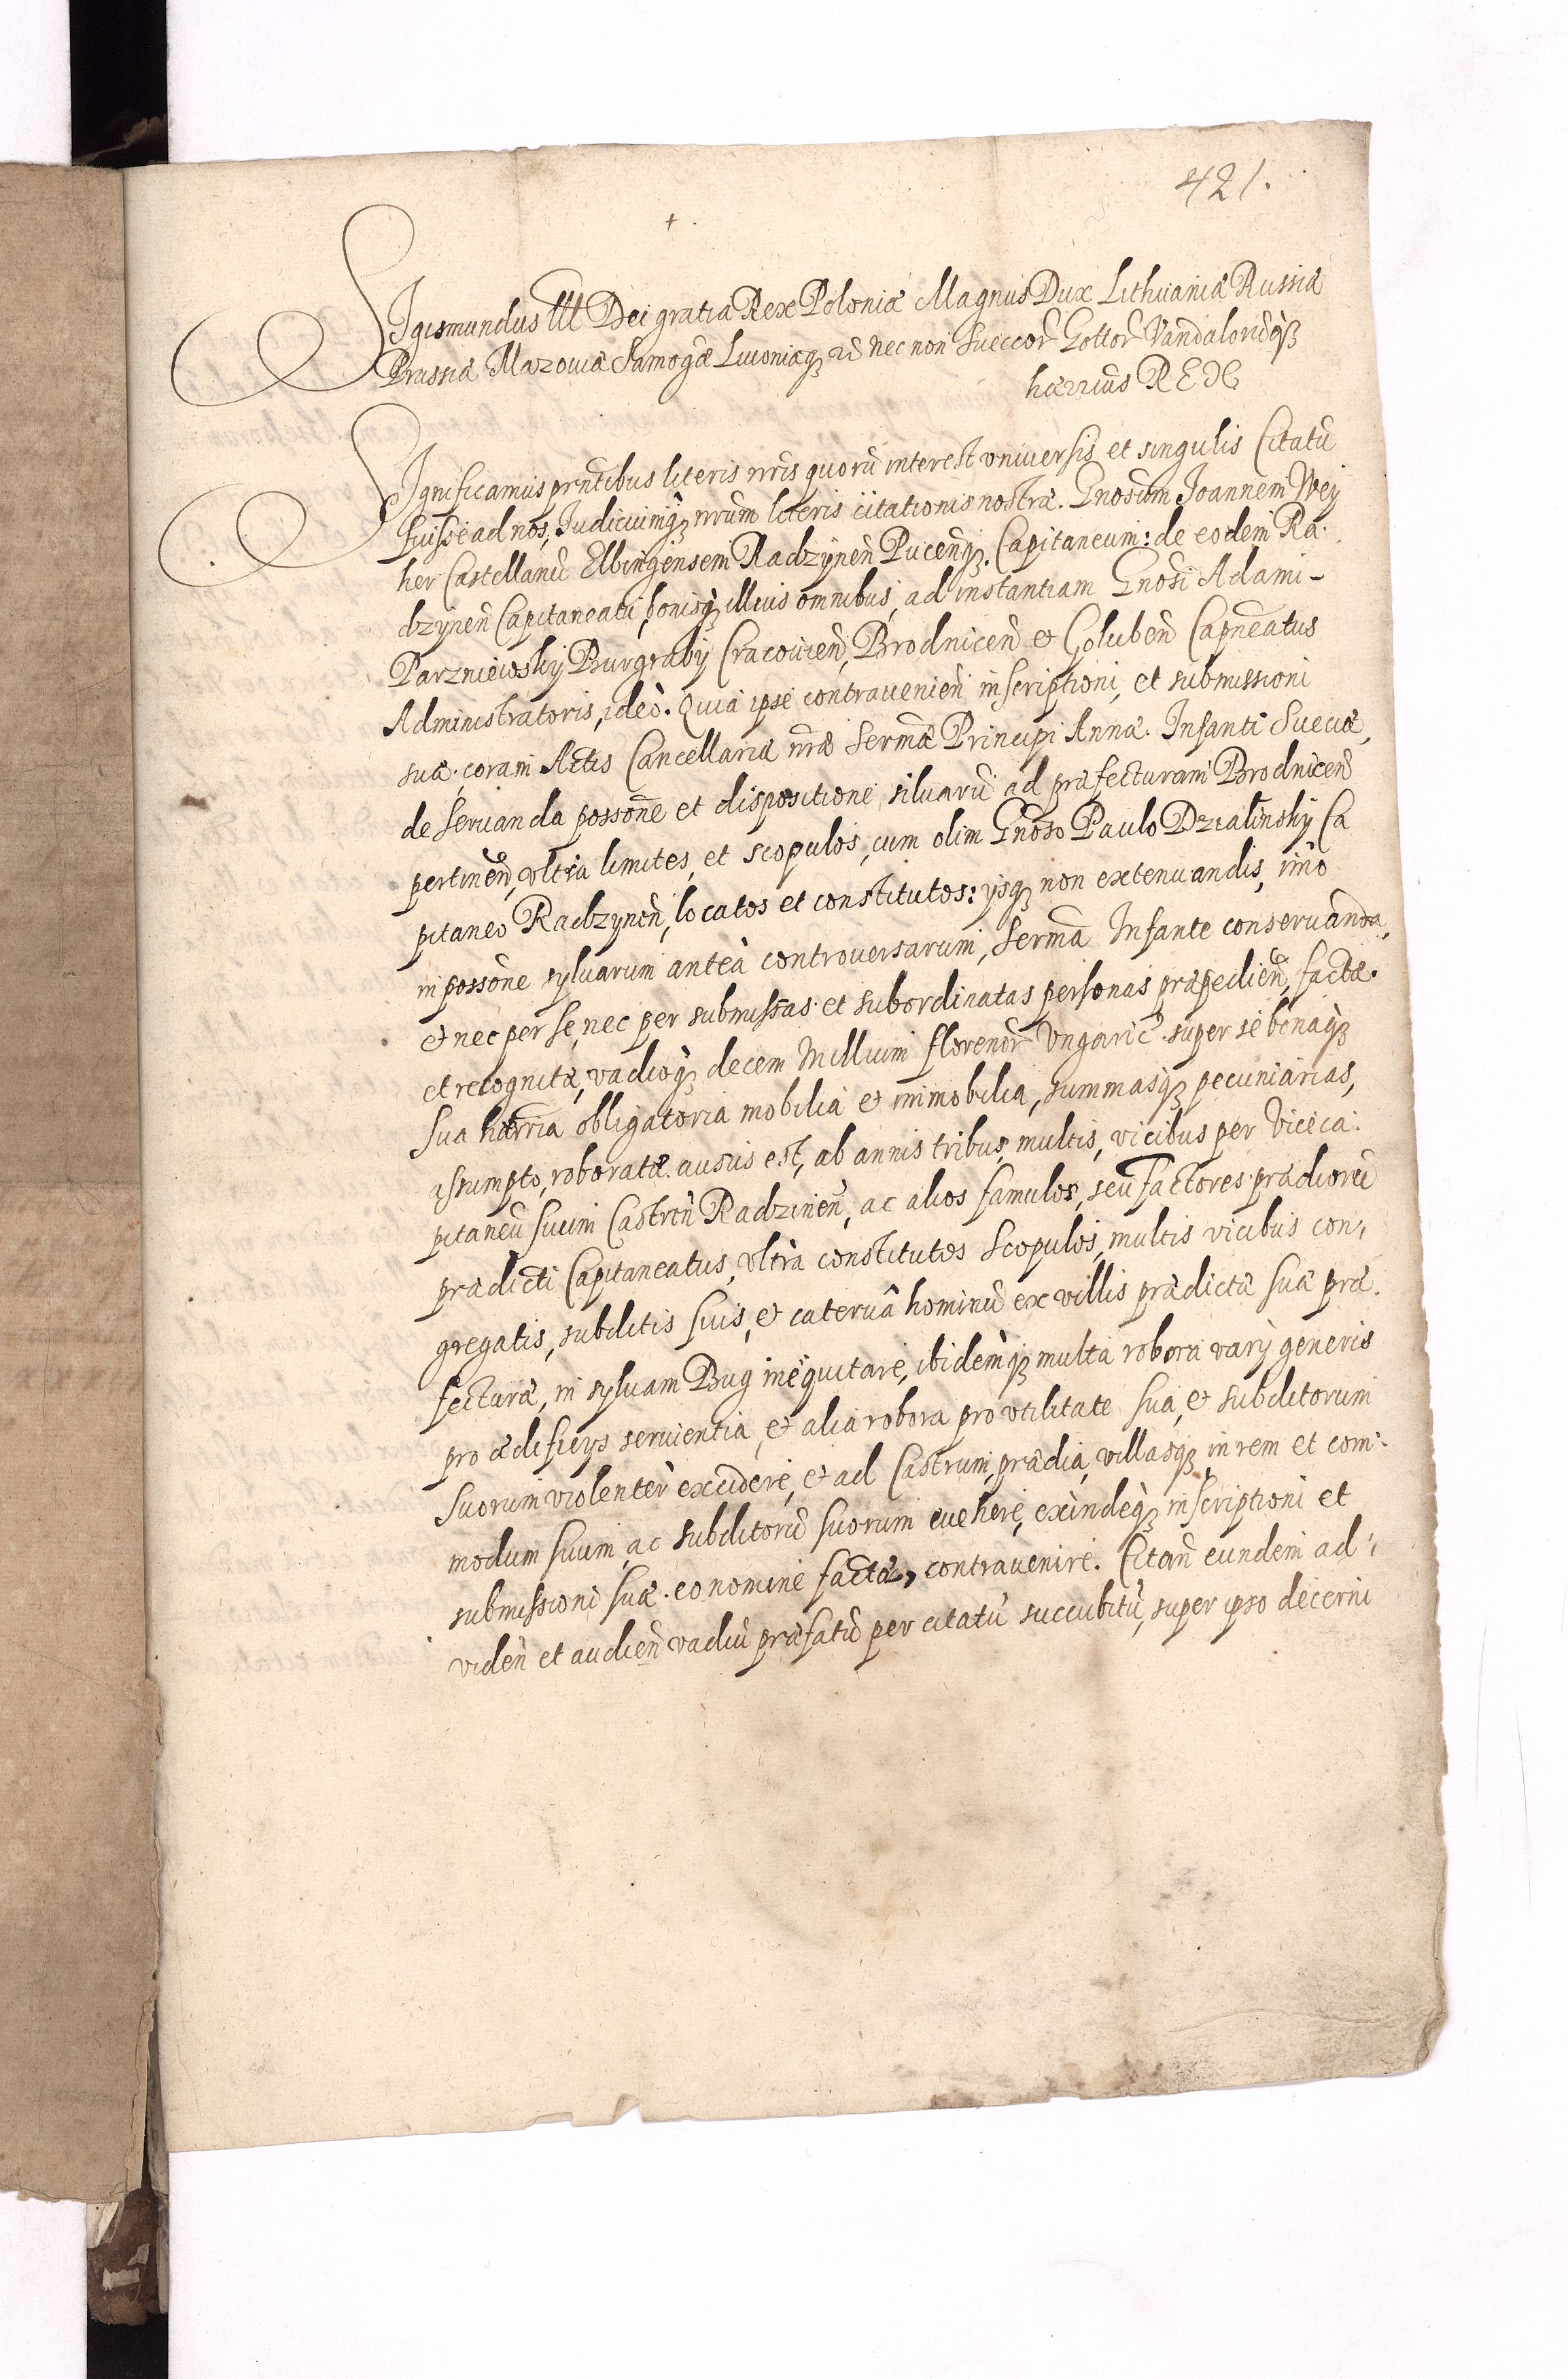 421.
Sigismundus III Dei gratia Rex Poloniæ Magnus Dux Lithuaniæ Russiæ
Prussiæ Mazouiæ Samogæ Liuoniæq₃ nec non Sueccor̃ Gottor̃ Vandalorũq₃
hærrius REX
Significamus pñtibus literis nr̃is quorũ interest vniuersis et singulis Citatũ
fuisse ad nos, Iudiciumq₃ nr̃um literis citationis nostræ. Gnosum Joannem Wey
her Castellanũ Elbingensem Radzynen̄ Pucenq₃ Capitaneum: de eodem Ra.
dzynen̄ Capitaneatu, bonisq₃ illius omnibus, ad instantiam Gnosi Adami -
Parzniewskij Burgrabij Cracouien̄, Brodnicen̄ et Goluben̄ Capneatus
Administratoris, ideò. Quia ipse contrauenien̄ inscriptioni, et submissioni
suæ. coram Actis Cancellariæ nr̃æ Sermæ Principi Annæ. Infanti Sueciæ,
de seruanda possone et dispositione siluarũ ad præfecturam Brodnicen̄
pertinen̄, vltra limites, et scopulos, cum olim Gnoso Paulo Dzialinskij Ca
pitaneo Radzynen̄, locatos et constitutos: ijsq₃ non extenuandis, imò
in possone syluarum anteà controuersarum, Serma Infante conseruanda,
et nec per se, nec per submissas et subordinatas personas præpedien̄, factæ.
et recognitæ, vadioq₃ decem Millium florenor̃ Vngaric̃. super se bonaq₃
sua hærria obligatoria mobilia et immobilia, summasq₃ pecuniarias,
assumpto, roboratæ. ausus est, ab annis tribus, multis, vicibus per Viceca:
pitaneũ suum Castren̄ Radzinen̄, ac alios famulos, seu factores prædiorũ
prædicti Capitaneatus, vltrà constitutos Scopulos, multis vicibus con,
gregatis, subditis suis, et cateruâ hominũ ex villis prædictæ suæ præ.
fecturæ, in syluam Bug inequitare, ibidemq₃ multa robora varij generis
pro ædificijs seruientia, et alia robora pro vtilitate sua, et subditorum
suorum violenter excidere, et ad Castrum, prædia, villasq₃ in rem et com:
modum suum, ac subditorũ suorum euehere, exindeq₃ inscriptioni et
submissioni suæ. eo nomine factæ, contrauenire. Citan̄ eundem ad:
viden̄ et audien̄ vadiũ præfatũ per citatũ succubitũ, super ipso decerni